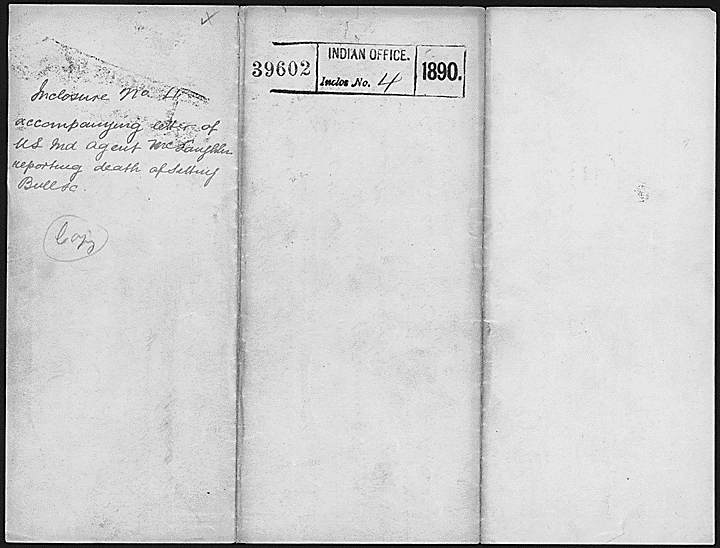 Inclosure No 4
accompanying letter of
US Ind Agent McLaughlin
reporting death of Sitting
Bull &c.
Copy
39602
INDIAN OFFICE.
Inclos No. 4
1890.